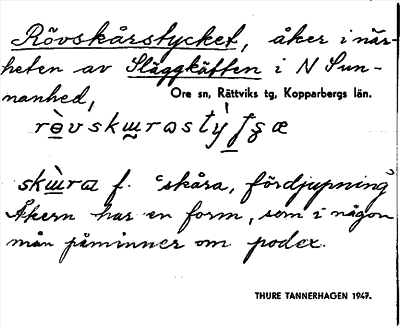 Rövskårstycket, åker i när-
heten av Släggkäften i N Sun-
nanhed,
Ore sn, Rättviks tg, Kopparbergs län.
skɯ̀ra f. "skåra, fördjupning"
Åkern har en form, som i någon
mån påminner om podex.
THURE TANNERHAGEN 1947.